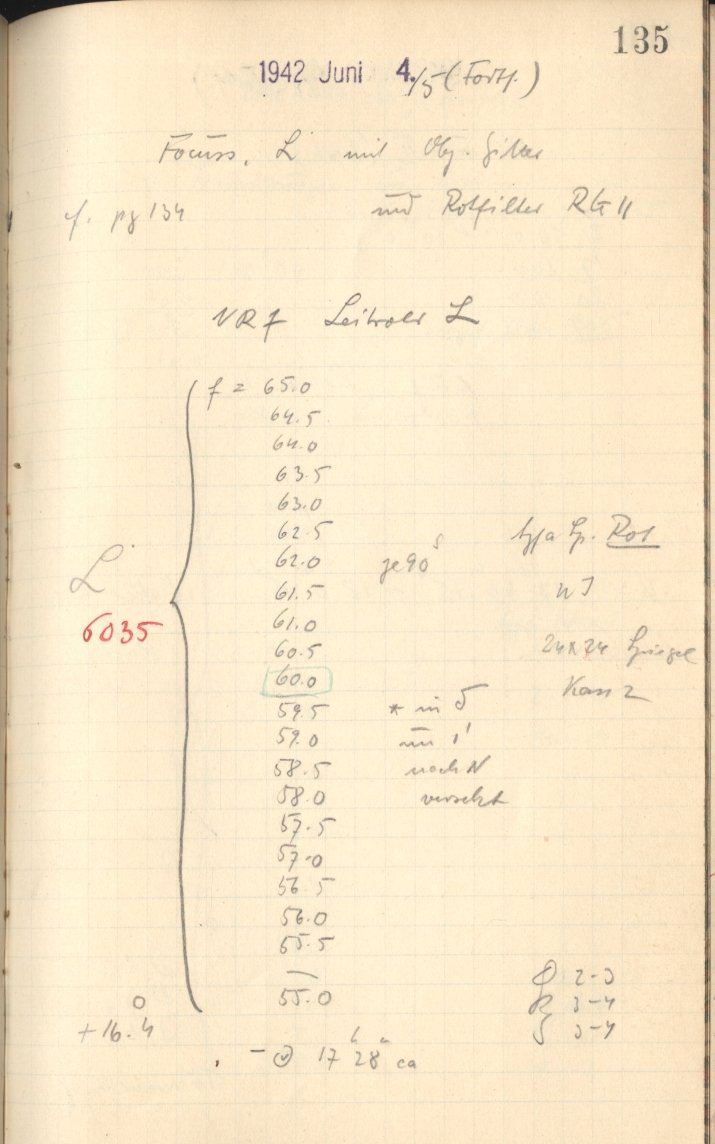 135
1942 Juni 4./5 (Forts.)
Focuss. L mit Obj. Gitter
cf. pg 134 und Rotfilter RG II
VRF Leitrohr L
f = 65.0
64.5
64.0
63.5
63.0
62.5
62.0 je 90 s
61.5
61.0
60.5
60.0
59.5
59.0
58.5
58.0
57.5
57.0
56.5
56.0
55.5
55.0
L
6035
Agfa Sp. Rot
24x24 Spiegel
Kass 2
* in δ
um 1'
nach N
versetzt
2-3
3-4
3-4
+16.4°
17h 28m ca